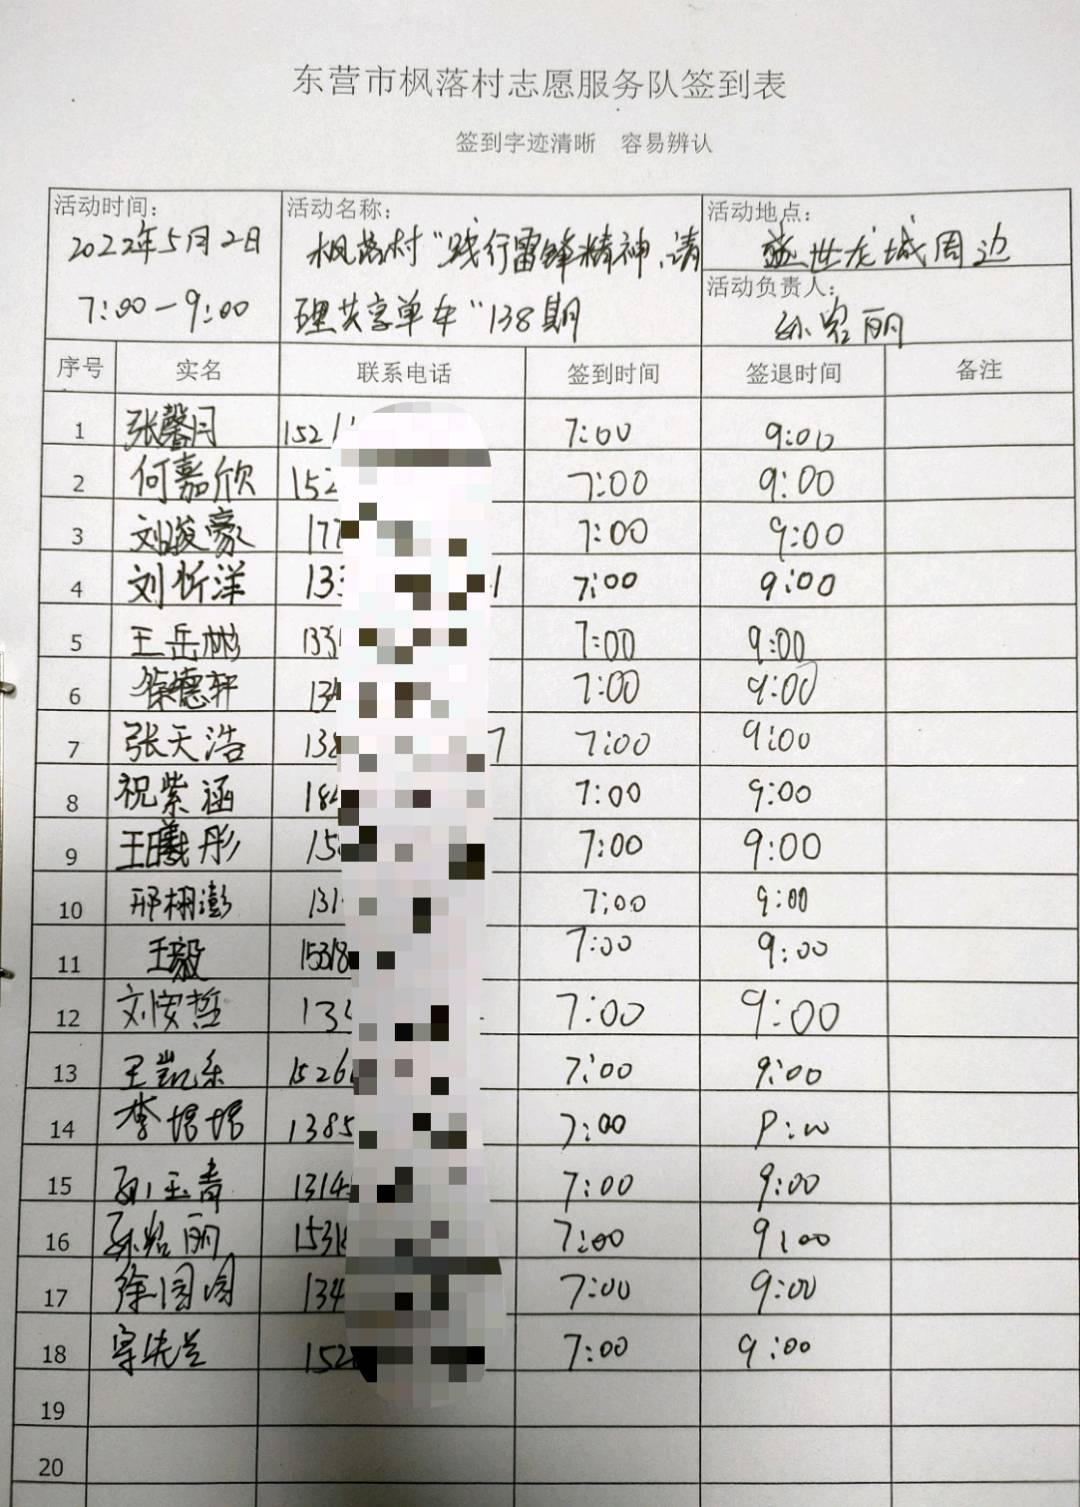 东营市枫落村志愿服务队签到表
签到字迹清晰 容易辨认
活动时间:
2022年5月2日
7:00-9:00
活动名称:
枫落村“践行雷锋精神,清
理共享单车”138期
活动地点:
盛世龙城周边
活动负责人:
孙岩丽
序号 实名 联系电话 签到时间 签退时间 备注
1 张馨月 1521 7:00 9:00
2 何嘉欣 152 7:00 9:00
3 刘骏豪 177 7:00 9:00
4 刘忻洋 133 1 7:00 9:00
5 王岳彬 133 7:00 9:00
6 徐德轩 134 7:00 9:00
7 张天浩 138 7 7:00 9:00
8 祝紫涵 184 7:00 9:00
9 王曦彤 15 7:00 9:00
10 邢栩澎 131 7:00 9:00
11 王毅 15318 7:00 9:00
12 刘安哲 13 7:00 9:00
13 王凯乐 1526 7:00 9:00
14 李培培 1385 7:00 9:00
15 孙玉青 1314 7:00 9:00
16 孙岩丽 1531 7:00 9:00
17 徐园园 134 7:00 9:00
18 152 7:00 9:00
19
20